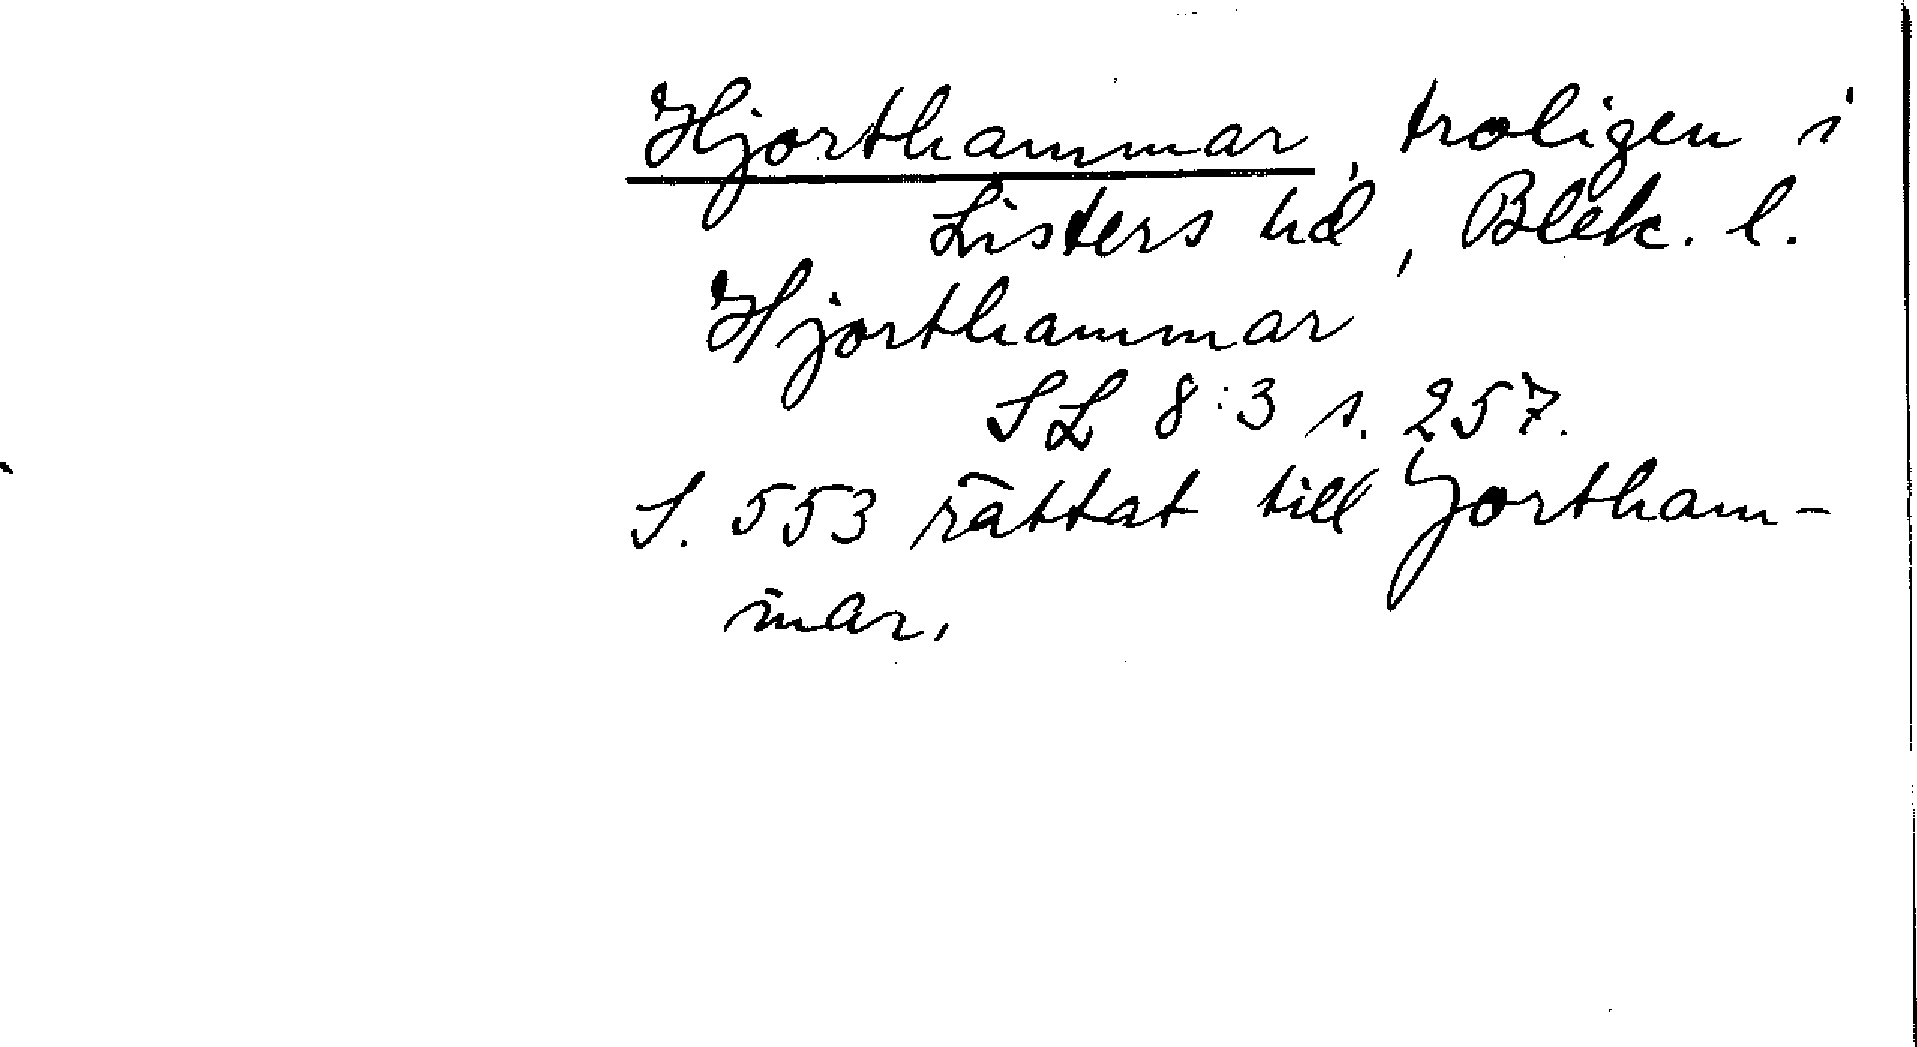 Hjorthammar, troligen i
Listers hd, Blek. l.
Hjorthammar
SL 8:3 s. 257.
S. 553 rättat till Gjortham-
mar.